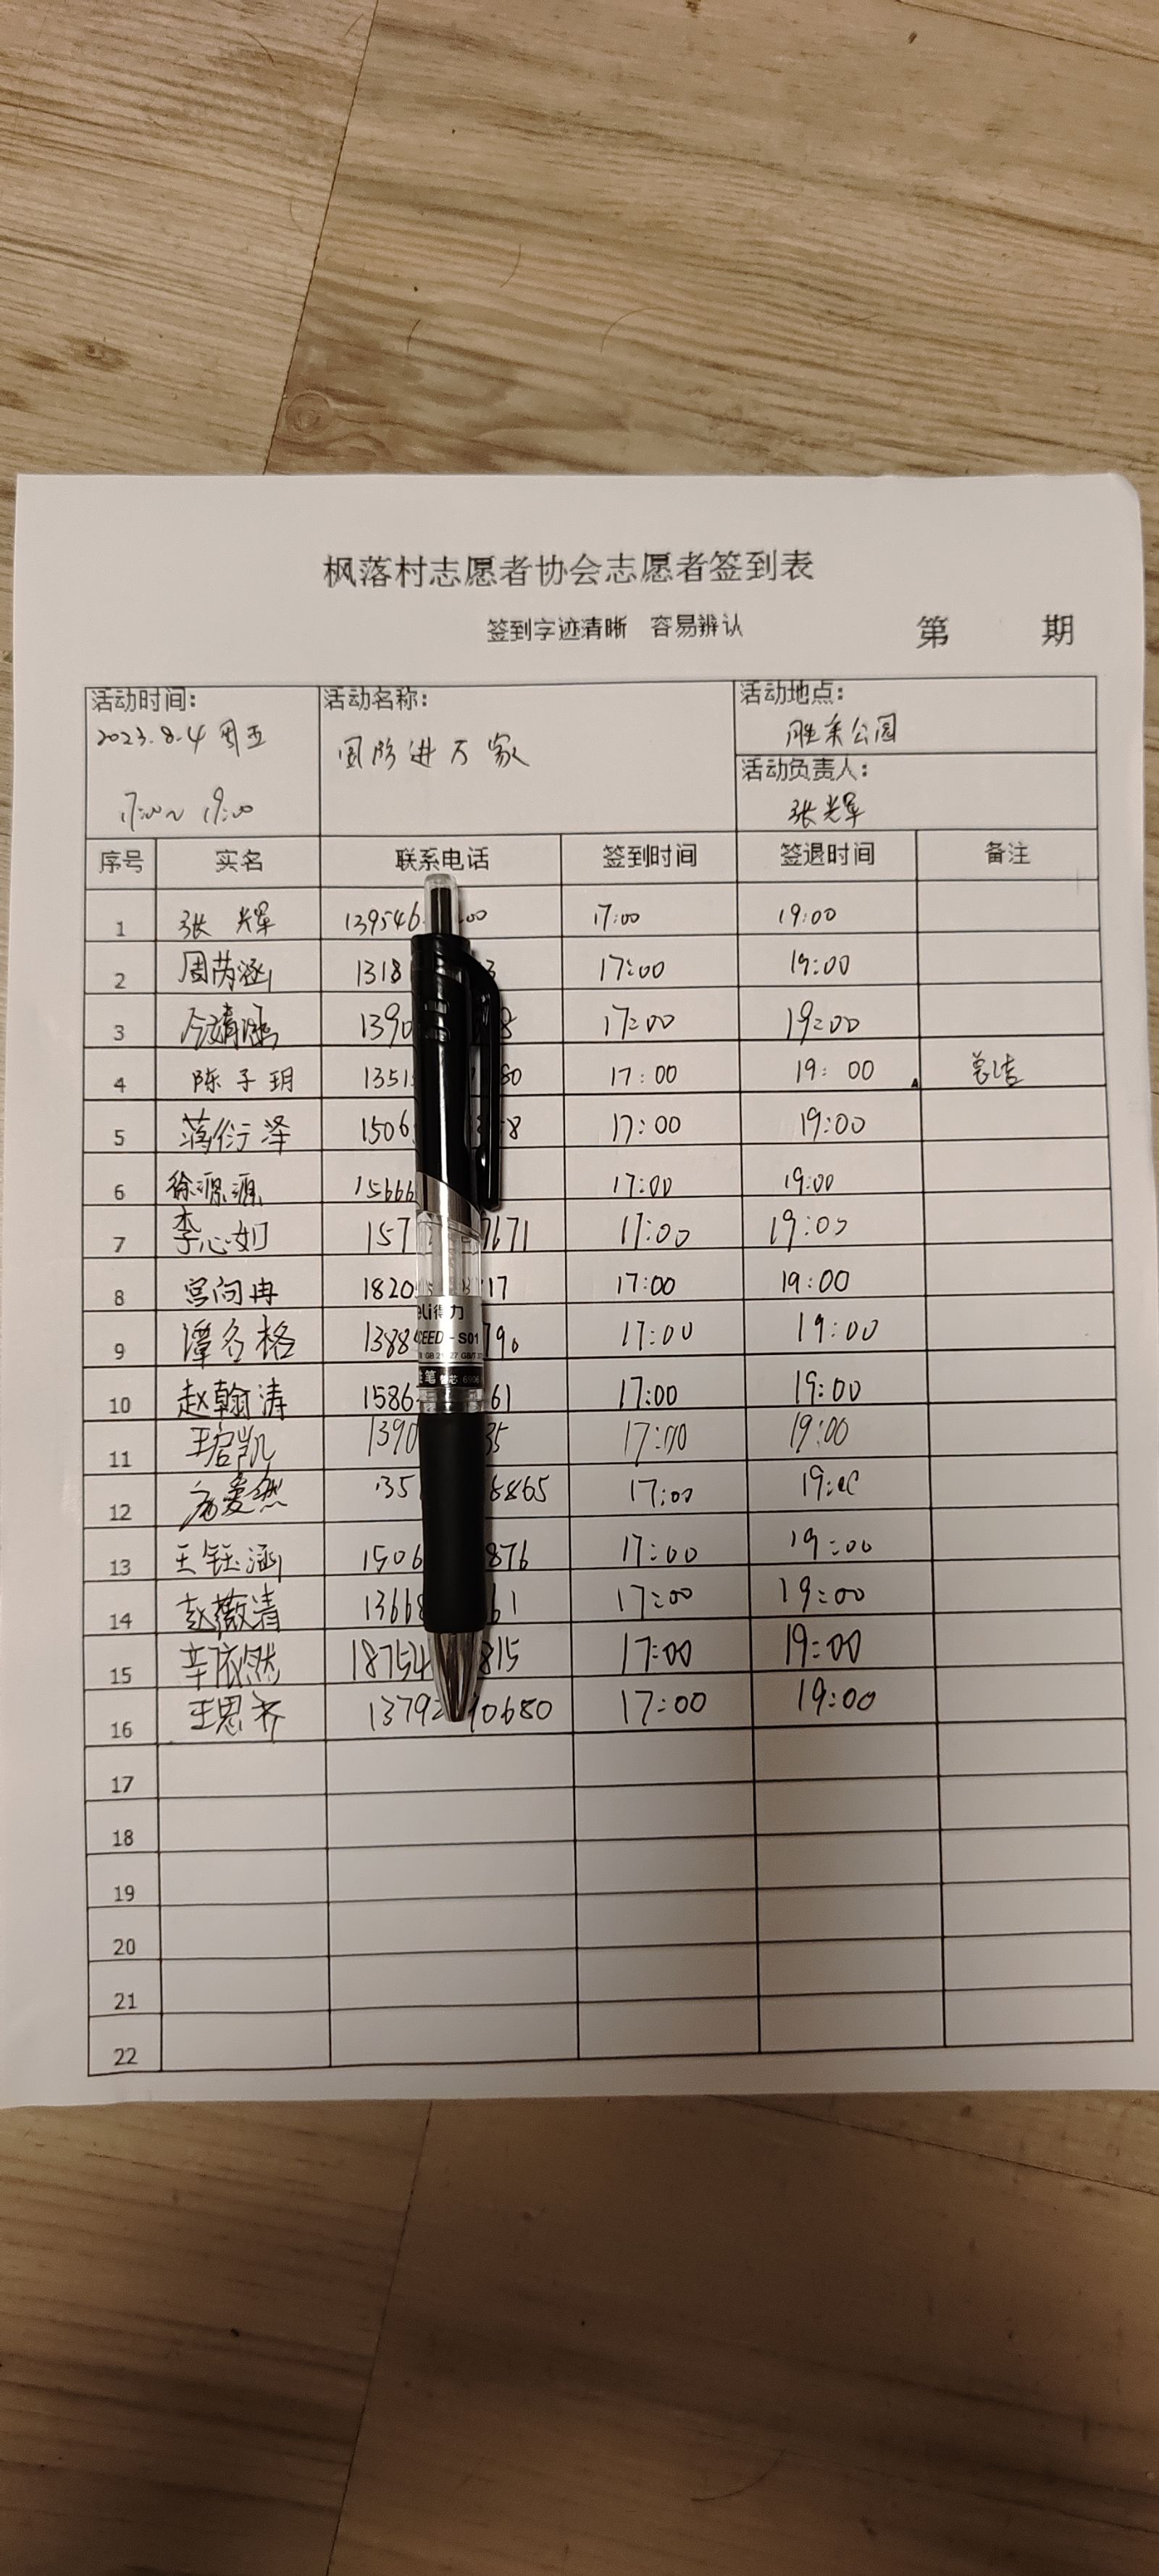 枫落村志愿者协会志愿者签到表
签到字迹清晰 容易辨认 第 期
活动时间: 活动名称: 活动地点:
2023.8.4 周五 国防进万家 胜利公园
活动负责人:
17:00~19:00 张光军
序号 实名 联系电话 签到时间 签退时间 备注
1 张 139546 00 17:00 19:00
2 周芮涵 1318 3 17:00 19:00
3 1390 8 17:00 19:00
4 陈子玥 1351 80 17:00 19:00 总结
5 蒋衍泽 1506 8 17:00 19:00
6 徐源源 15666 17:00 19:00
7 李心如 157 7671 17:00 19:00
8 宫向冉 1820 17 17:00 19:00
9 谭名格 1388 790 17:00 19:00
eli得力
CEED-S01
10 赵翰涛 1586 61 17:00 19:00
11 王启凯 1390 35 17:00 19:00
12 135 6865 17:00 19:00
13 王钰涵 1506 876 17:00 19:00
14 赵薇清 1366 61 17:00 19:00
15 辛依然 18754 815 17:00 19:00
16 王思齐 1379 0680 17:00 19:00
17
18
19
20
21
22